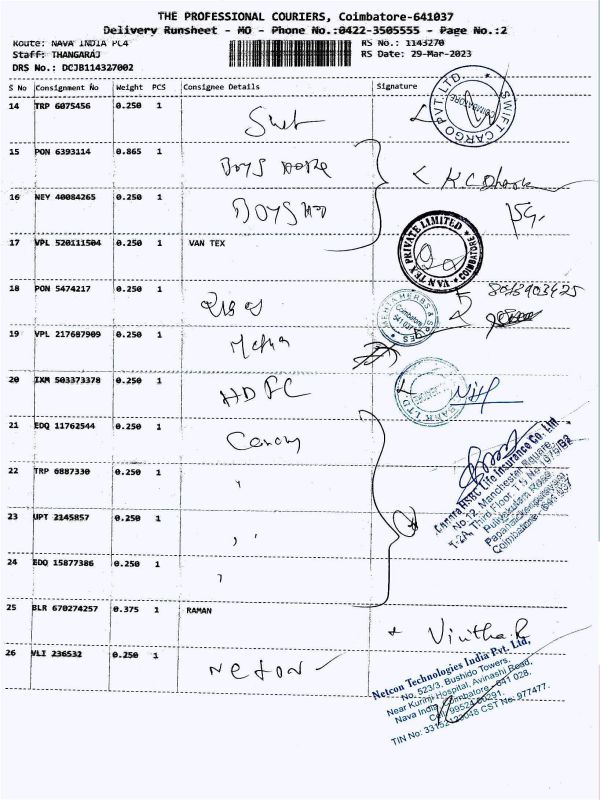 THE PROFESSIONAL COURIERS, Coimbatore-641037
Delivery Runsheet - MO - Phone No.:0422-3505555 - Page No.:2
Route: NAVA INDIA PC4 RS No.: 1143270
Staff: THANGARAJ RS Date: 29-Mar-2023
DRS No.: DCJB114327002
S No Consignment No Weight PCS Consignee Details Signature
14 TRP 6075456 0.250 1
SWIFT CARGO PVT. LTD. COIMBATORE
15 PON 6393114 0.865 1 BOYS
16 NEY 40084265 0.250 1 BOYS
17 VPL 520111504 0.250 1 VAN TEX
VAN TEX PRIVATE LIMITED COIMBATORE
18 PON 5474217 0.250 1
MEHTA HERBS & SPICES Coimbatore 641 037
19 VPL 217687909 0.250 1 Mehta
20 IXM 503373378 0.250 1 HDFC
BANK LTD
21 EDQ 11762544 0.250 1
22 TRP 6887330 0.250 1 "
23 UPT 2145857 0.250 1 "
24 EDQ 15877386 0.250 1
Canara HSBC Life Insurance Co. Ltd
No.12, Manchester Square
Third Floor,
Puliakulam Road
Papanaickenpalayam
Coimbatore - 641 037
25 BLR 670274257 0.375 1 RAMAN Vinitha.R
26 VLI 236532 0.250 1 Netcon
Netcon Technologies India Pvt. Ltd,
No. 523/3, Bushido Towers,
Near Kurinji Hospital, Avinashi Road,
Nava India, Coimbatore - 641 028.